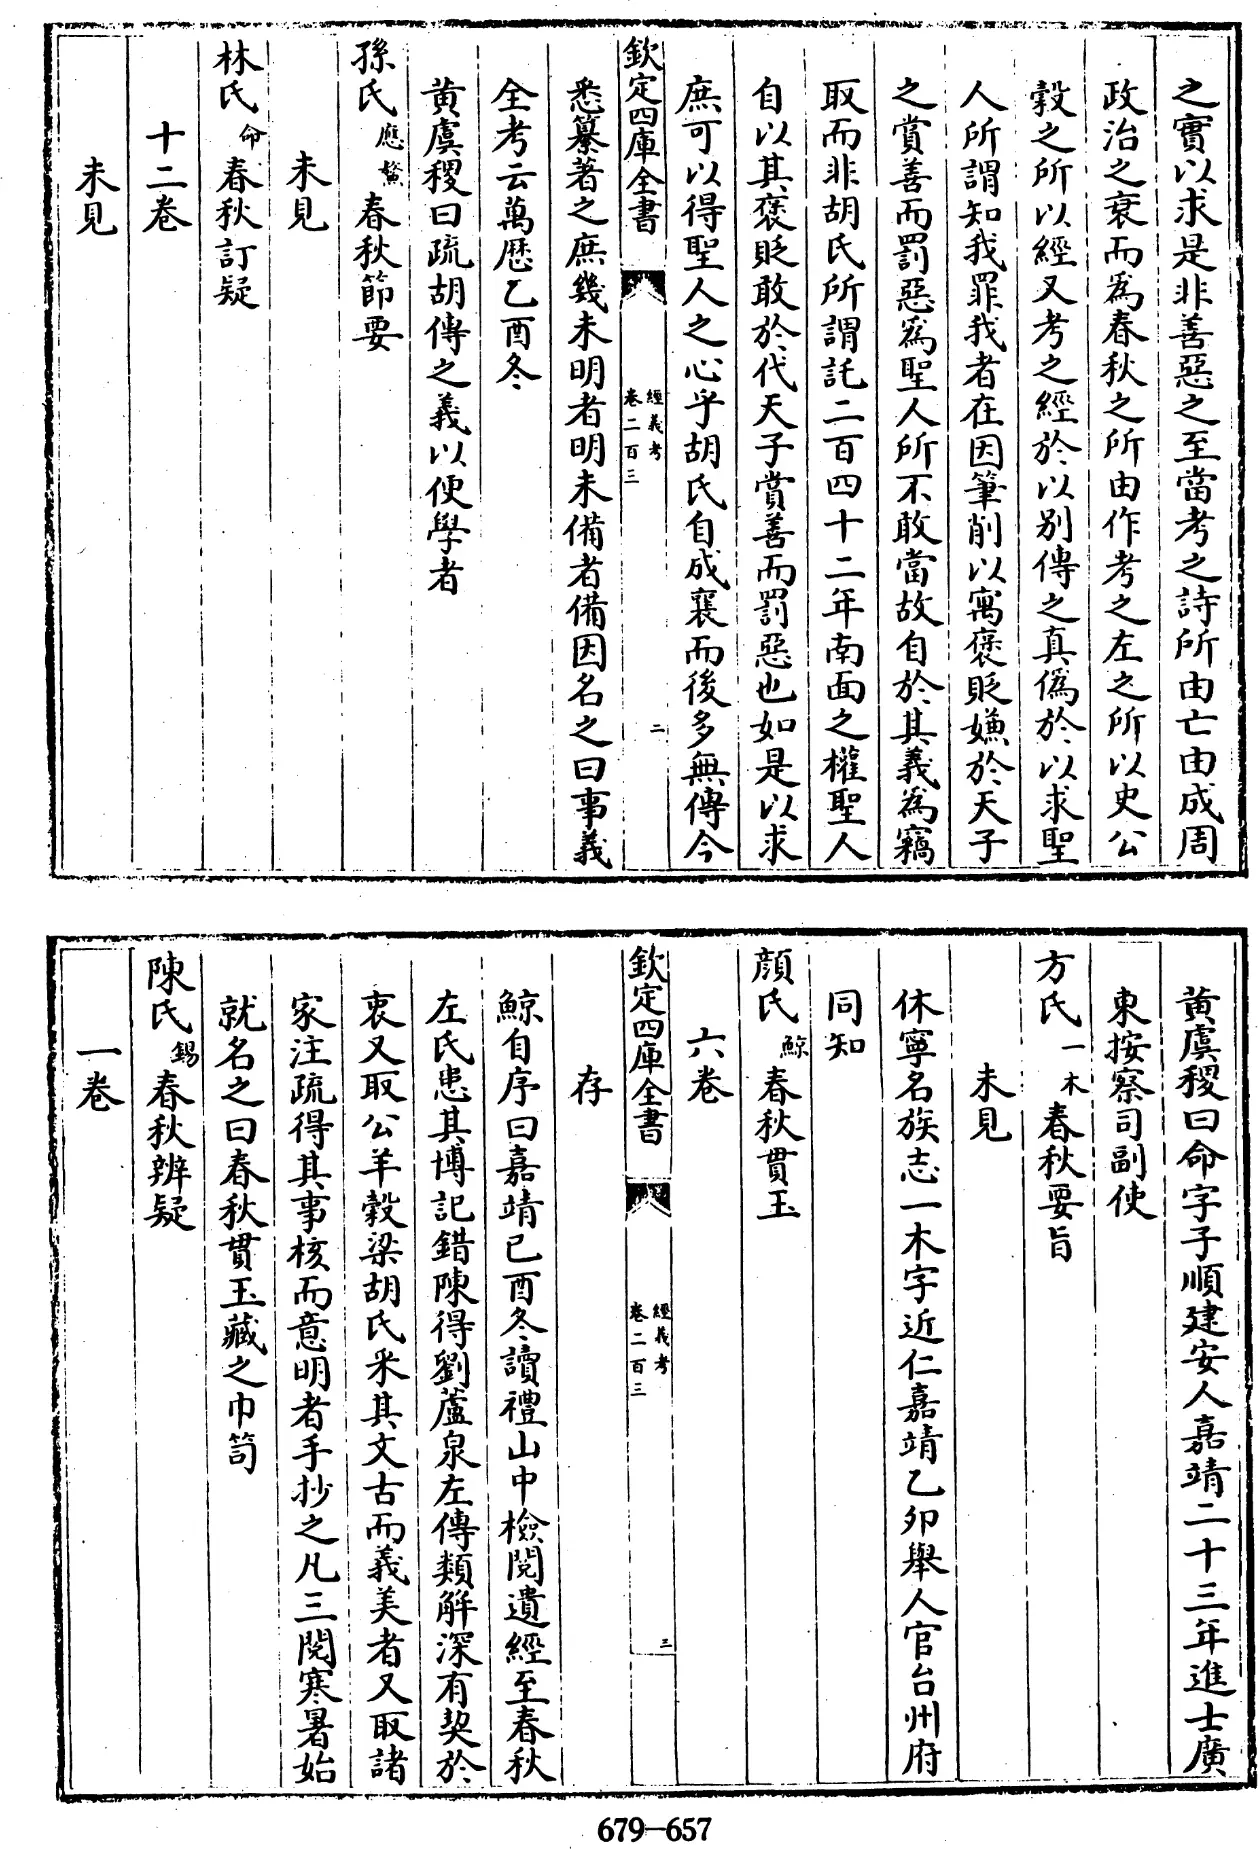 之實以求是非善惡之至當考之詩所由亡由成周
政治之衰而為春秋之所由作考之左之所以史公
穀之所以經又考之經於以別傳之真偽於以求聖
人所謂知我罪我者在因筆削以寓褒貶嫌於天子
之賞善而罰惡為聖人所不敢當故自於其義為竊
取而非胡氏所謂託二百四十二年南面之權聖人
自以其褒貶敢於代天子賞善而罰惡也如是以求
庶可以得聖人之心乎胡氏自成襄而後多無傳今
欽定四庫全書
經義考
卷二百三
二
悉纂著之庶幾未明者明未備者備因名之曰事義
全考云萬歷乙酉冬
黃虞稷曰疏胡傳之義以便學者
孫氏應鰲春秋節要
未見
林氏命春秋訂疑
十二卷
未見
黃虞稷曰命字子順建安人嘉靖二十三年進士廣
東按察司副使
方氏一木春秋要旨
未見
休寧名族志一木字近仁嘉靖乙卯舉人官台州府
同知
顏氏鯨春秋貫玉
六卷
欽定四庫全書
經義考
卷二百三
三
存
鯨自序曰嘉靖己酉冬讀禮山中檢閱遺經至春秋
左氏患其博記錯陳得劉蘆泉左傳類解深有契於
衷又取公羊穀梁胡氏采其文古而義美者又取諸
家注疏得其事核而意明者手抄之凡三閱寒暑始
就名之曰春秋貫玉藏之巾笥
陳氏錫春秋辨疑
一卷
679-657